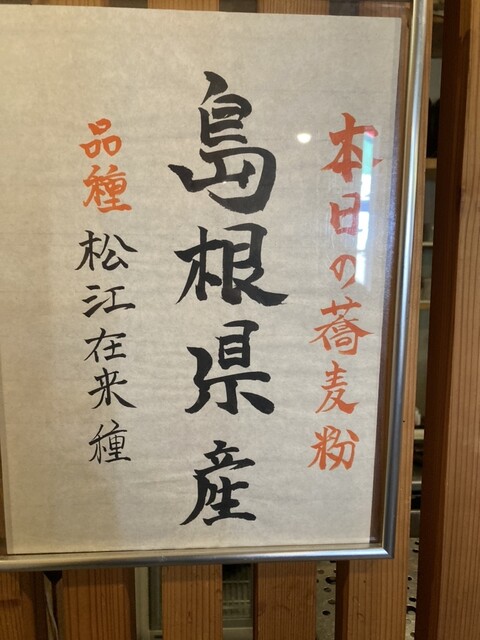 本日の蕎麦粉
島根県産
品種 松江在来種